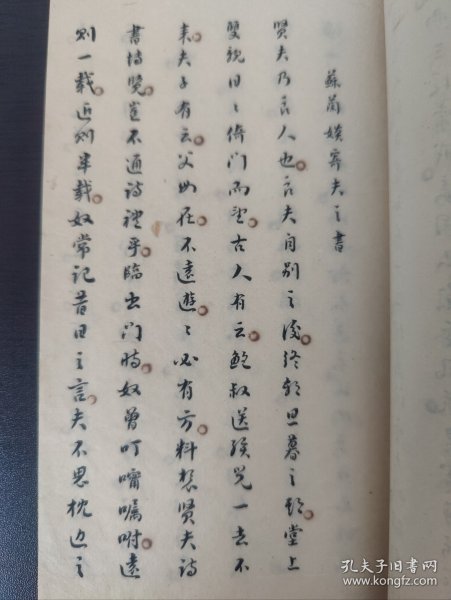 蘇寄夫之書
賢夫乃良人也。夫自別之後。終朝旦暮之堂上
雙親日々倚門而望。古人有云。鮑叔送一去不
来。夫子有云。父母在。不遠遊。々必有方。料想賢夫詩
書博覽。豈不通詩禮乎。臨出門時。奴曾叮嚀囑咐。遠
則一載。近則半載。奴常記昔日之言。夫不思枕边之
孔夫子旧书网
https://www.kongfz.com